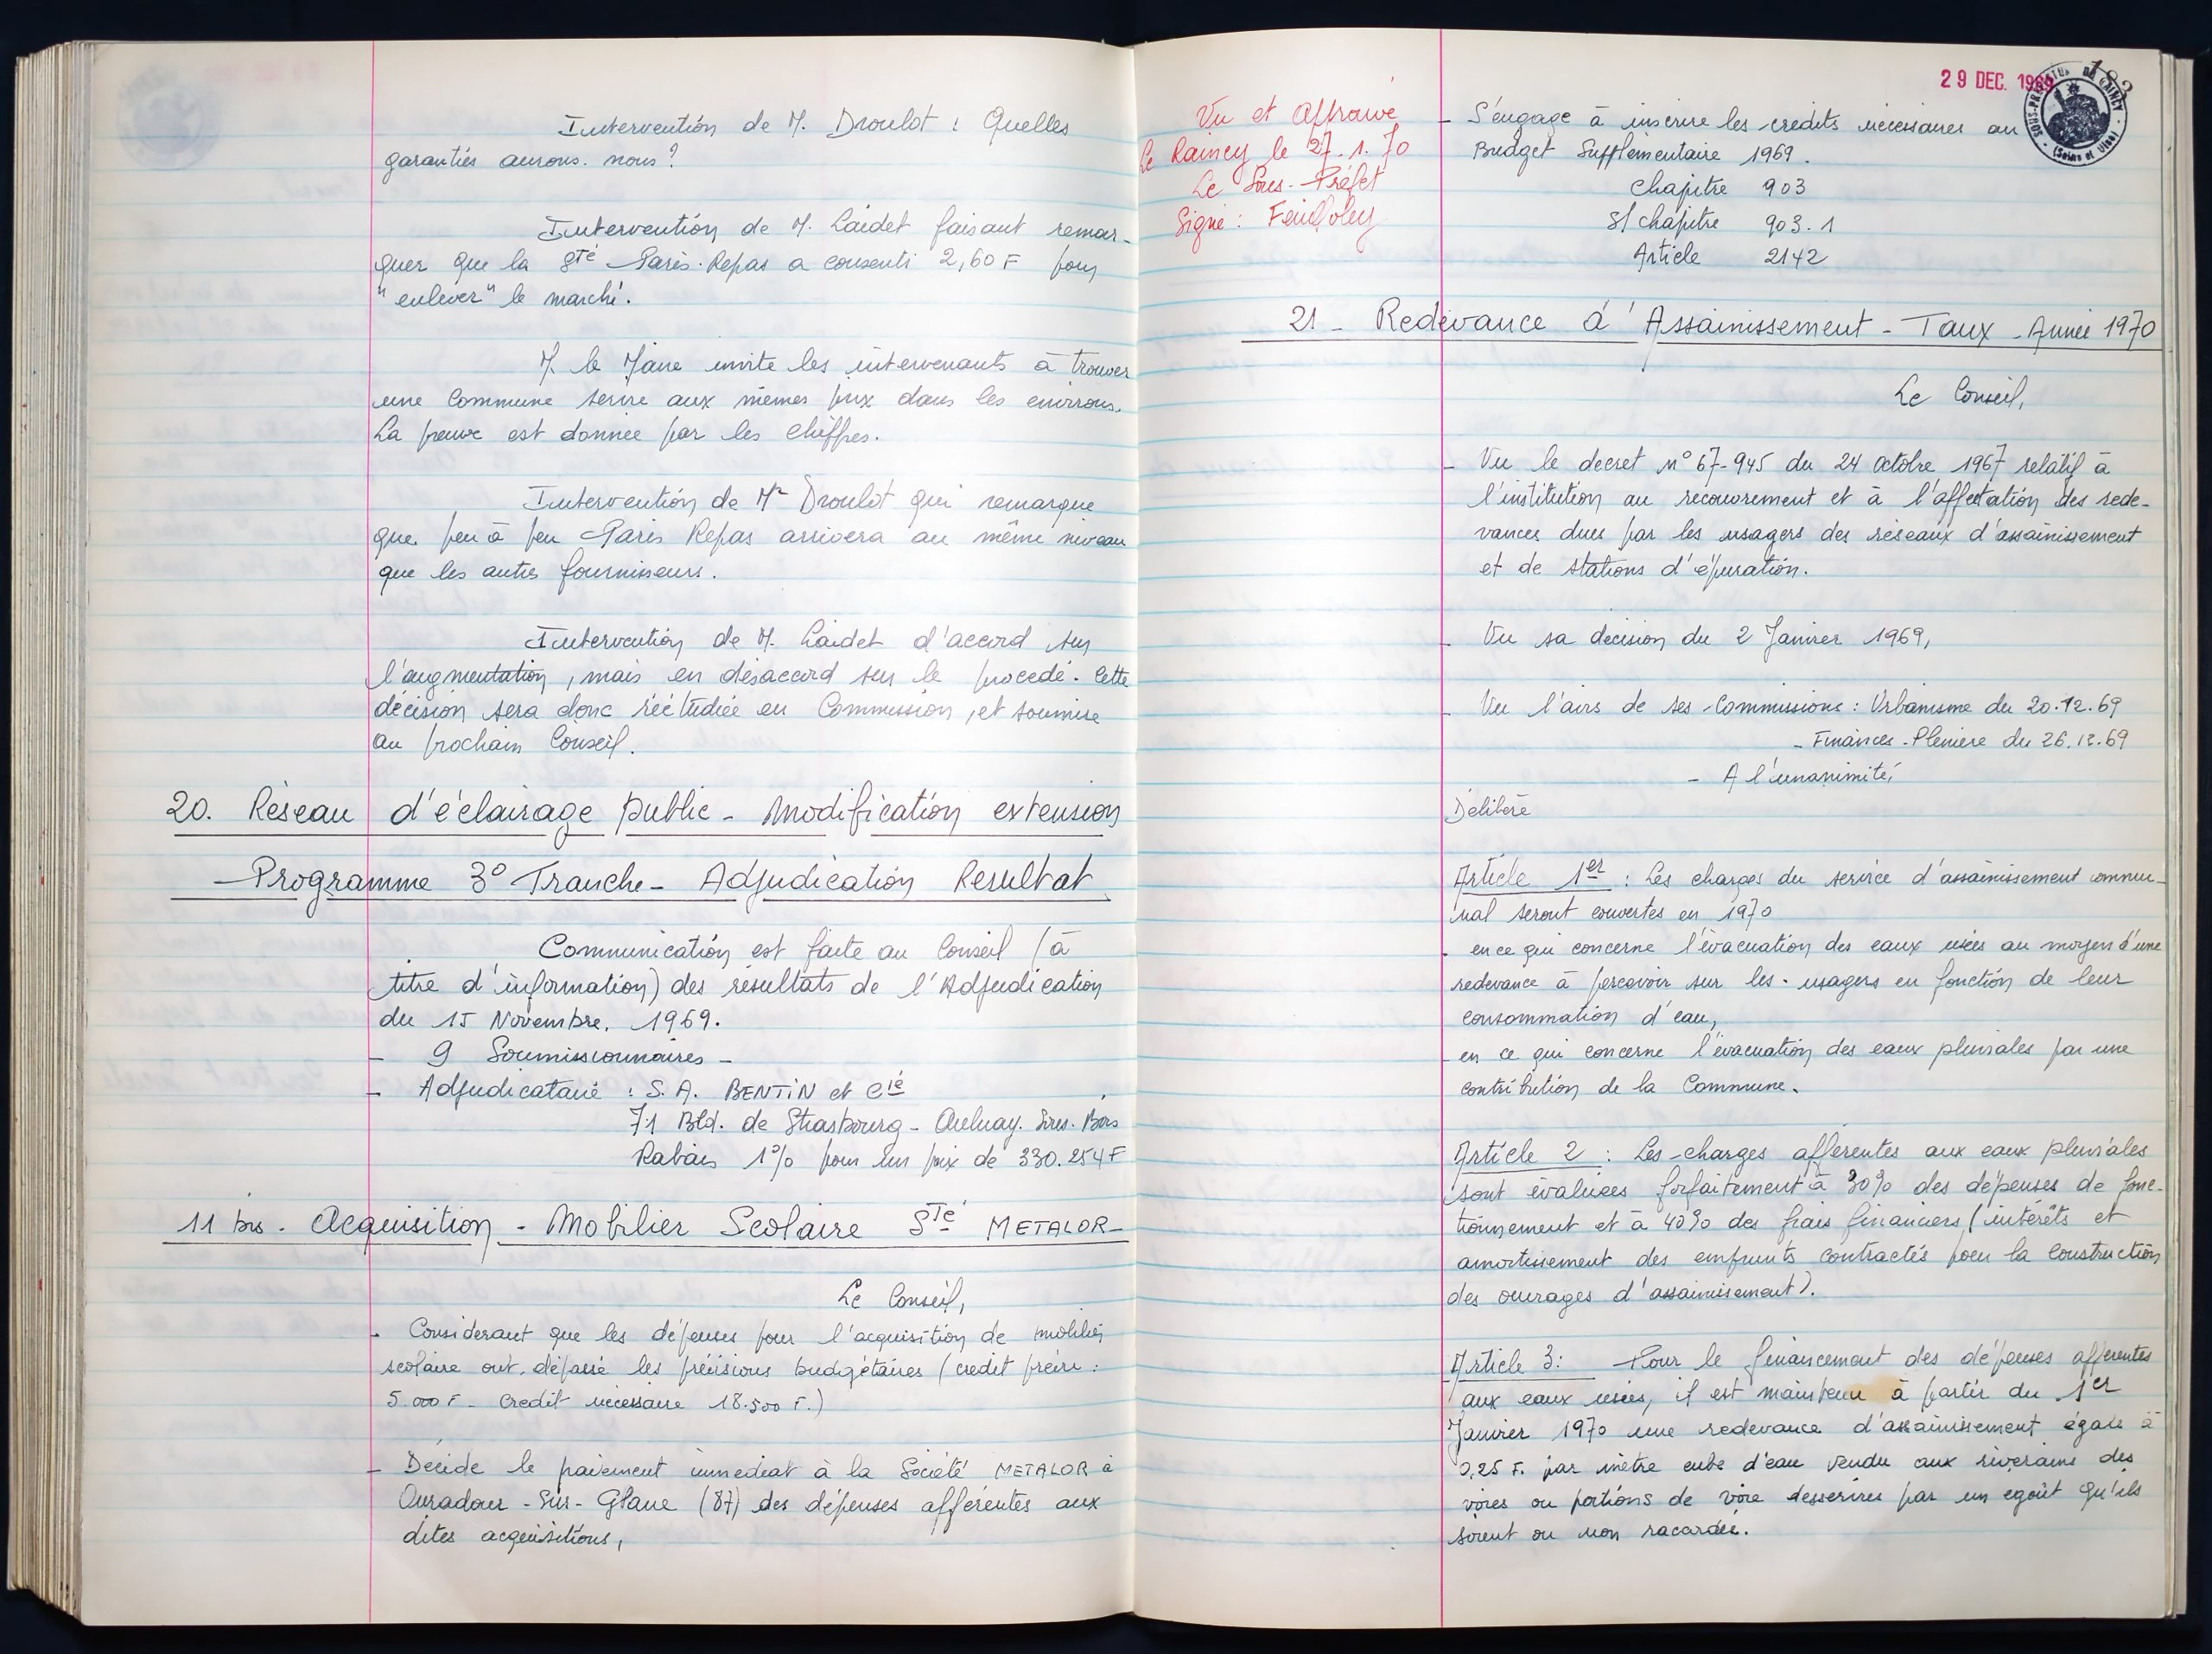 Intervention de M. Droulot : Quelles
garanties aurons-nous ?
Intervention de M. Laidet faisant remar-
quer que la Sté Paris-Repas a consenti 2,60 F pour
"enlever" le marché.
M. le Maire invite les intervenants à trouver
une Commune servie aux mêmes prix dans les environs.
La preuve est donnée par les chiffres.
Intervention de Mr Droulot qui remarque
que peu à peu Paris Repas arrivera au même niveau
que les autres fournisseurs.
Intervention de M. Laidet d'accord sur
l'augmentation, mais en désaccord sur le procédé. Cette
décision sera donc réétudiée en Commission, et soumise
au prochain Conseil.
20. Réseau d'éclairage public - Modification extension
- Programme 3° Tranche - Adjudication Résultat
Communication est faite au Conseil (à
titre d'information) des résultats de l'Adjudication
du 15 Novembre. 1969.
- 9 Soumissionnaires -
- Adjudicataire : S.A. BENTIN et Cie
71 Bld. de Strasbourg - Aulnay-Sous-Bois
Rabais 1% pour un prix de 330.254 F
11 bis - Acquisition - Mobilier Scolaire Sté METALOR -
Le Conseil,
- Considerant que les dépenses pour l'acquisition de mobilier
scolaire ont dépassé les prévisions budgétaires (crédit prévu :
5.000 F - Crédit nécessaire 18.500 F.)
- Décide le paiement immédiat à la Société METALOR à
Ouradour-Sur-Glane (87) des dépenses afférentes aux
dites acquisitions,
29 DEC. 1969
SOUS-PREFECTURE DU RAINCY
(Seine et Oise)
Vu et Approuvé
Le Raincy le 27.1.70
Le Sous-Préfet
Signé :
- S'engage à inscrire les crédits nécessaires au
Budget Supplémentaire 1969.
Chapitre 903
S/chapitre 903.1
Article 2142
21 - Redevance d'Assainissement - Taux - Année 1970
Le Conseil,
- Vu le decret n° 67-945 du 24 octobre 1967 relatif à
l'institution au recouvrement et à l'affectation des rede-
vances dues par les usagers des réseaux d'assainissement
et de stations d'épuration.
- Vu sa décision du 2 Janvier 1969,
- Vu l'avis de ses Commissions : Urbanisme du 20.12.69
- Finances - Plénière du 26.12.69
- A l'unanimité,
Délibère
Article 1er : Les charges du service d'assainissement commu-
nal seront couvertes en 1970
- en ce qui concerne l'évacuation des eaux usées au moyen d'une
redevance à percevoir sur les usagers en fonction de leur
consommation d'eau,
- en ce qui concerne l'évacuation des eaux pluviales par une
contribution de la Commune.
Article 2 : Les charges afférentes aux eaux pluviales
sont évaluées forfaitement à 30% des dépenses de fonc-
tionnement et à 40% des frais financiers (intérêts et
amortissement des emprunts contractés pour la construction
des ouvrages d'assainissement).
Article 3 : Pour le financement des dépenses afférentes
aux eaux usées, il est maintenu à partir du 1er
Janvier 1970 une redevance d'assainissement égale à
0,25 F. par mètre cube d'eau vendu aux riverains des
voies ou portions de voie desservies par un égoût qu'ils
soient ou non racordés.